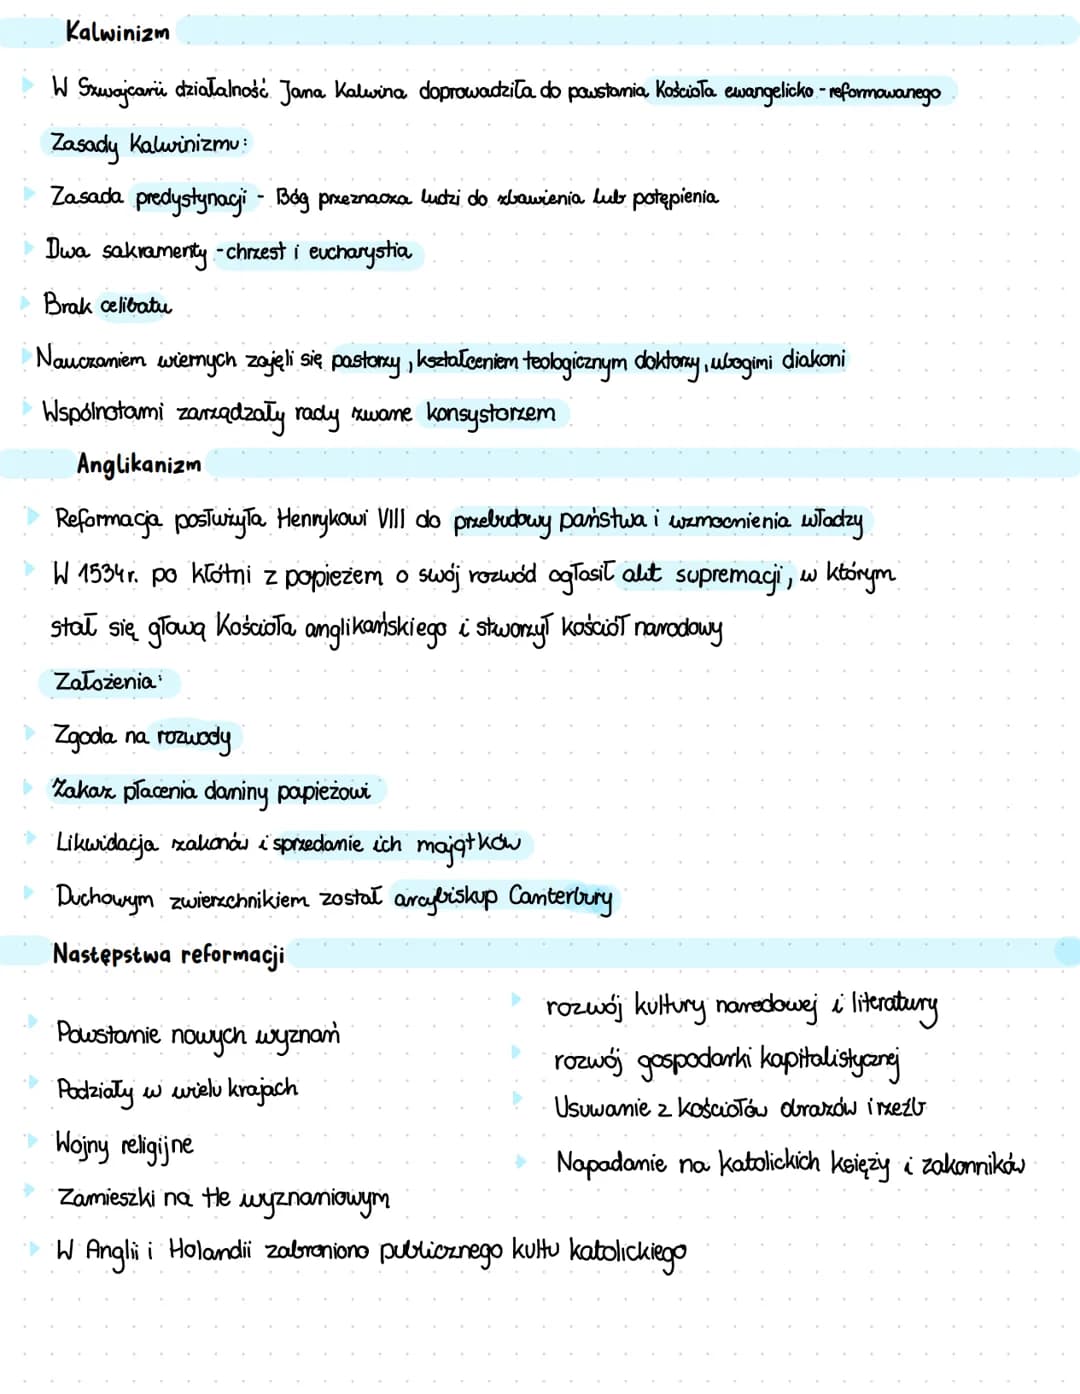 Kalwinizm
W Szwajcarii działalność Jana Kalwina doprowadziła do powstania Kościoła ewangelicko-reformowanego
Zasady Kalwinizmu:
Zasada predystynacji - Bóg przeznacza ludzi do zbawienia lub potępienia
Dwa sakramenty - chrzest i eucharystia
Brak celibatu
Nauczaniem wiernych zajęli się pastorzy, kształceniem teologicznym doktorzy, ubogimi diakoni
Wspólnotami zarządzały rady zwane konsystorzem
Anglikanizm
Reformacja posłużyła Henrykowi VIII do przebudowy państwa i wzmocnienia władzy
W 1534r. po kłótni z papieżem o swój rozwód ogłosił akt supremacji, w którym
stał się głową Kościoła anglikańskiego i stworzył kościół narodowy
Założenia:
Zgoda na rozwody
Zakaz płacenia daniny papieżowi
Likwidacja zakonów i sprzedanie ich majątków
Duchowym zwierzchnikiem został arcybiskup Canterbury
Następstwa reformacji
Powstanie nowych wyznań
Podziały w wielu krajach
Wojny religijne
Zamieszki na tle wyznaniowym
W Anglii i Holandii zabroniono publicznego kultu katolickiego
rozwój kultury narodowej i literatury
rozwój gospodarki kapitalistycznej
Usuwanie z kościołów obrazów i rzeźb
Napadanie na katolickich księży i zakonników